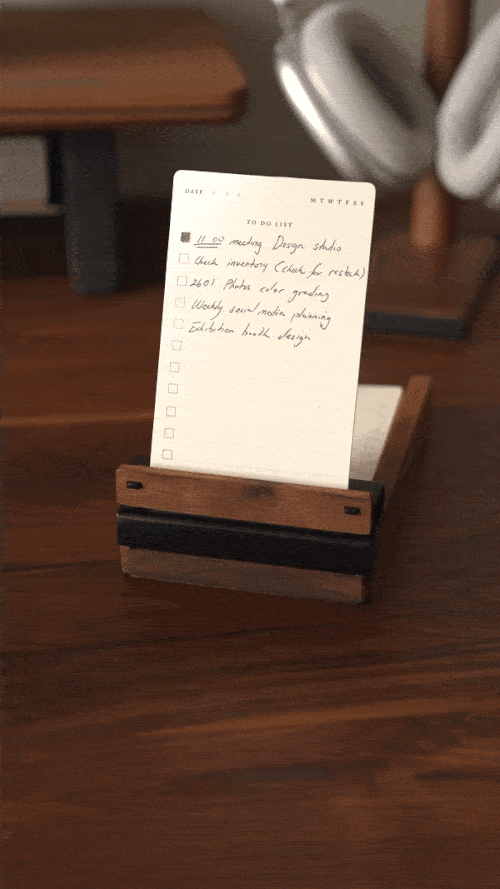 DATE / /
M T W T F S S
TO DO LIST
11 00 meeting Design studio
Check inventory (check for restock)
2601 Photos color grading
Weekly social media planning
Exhibition booth design